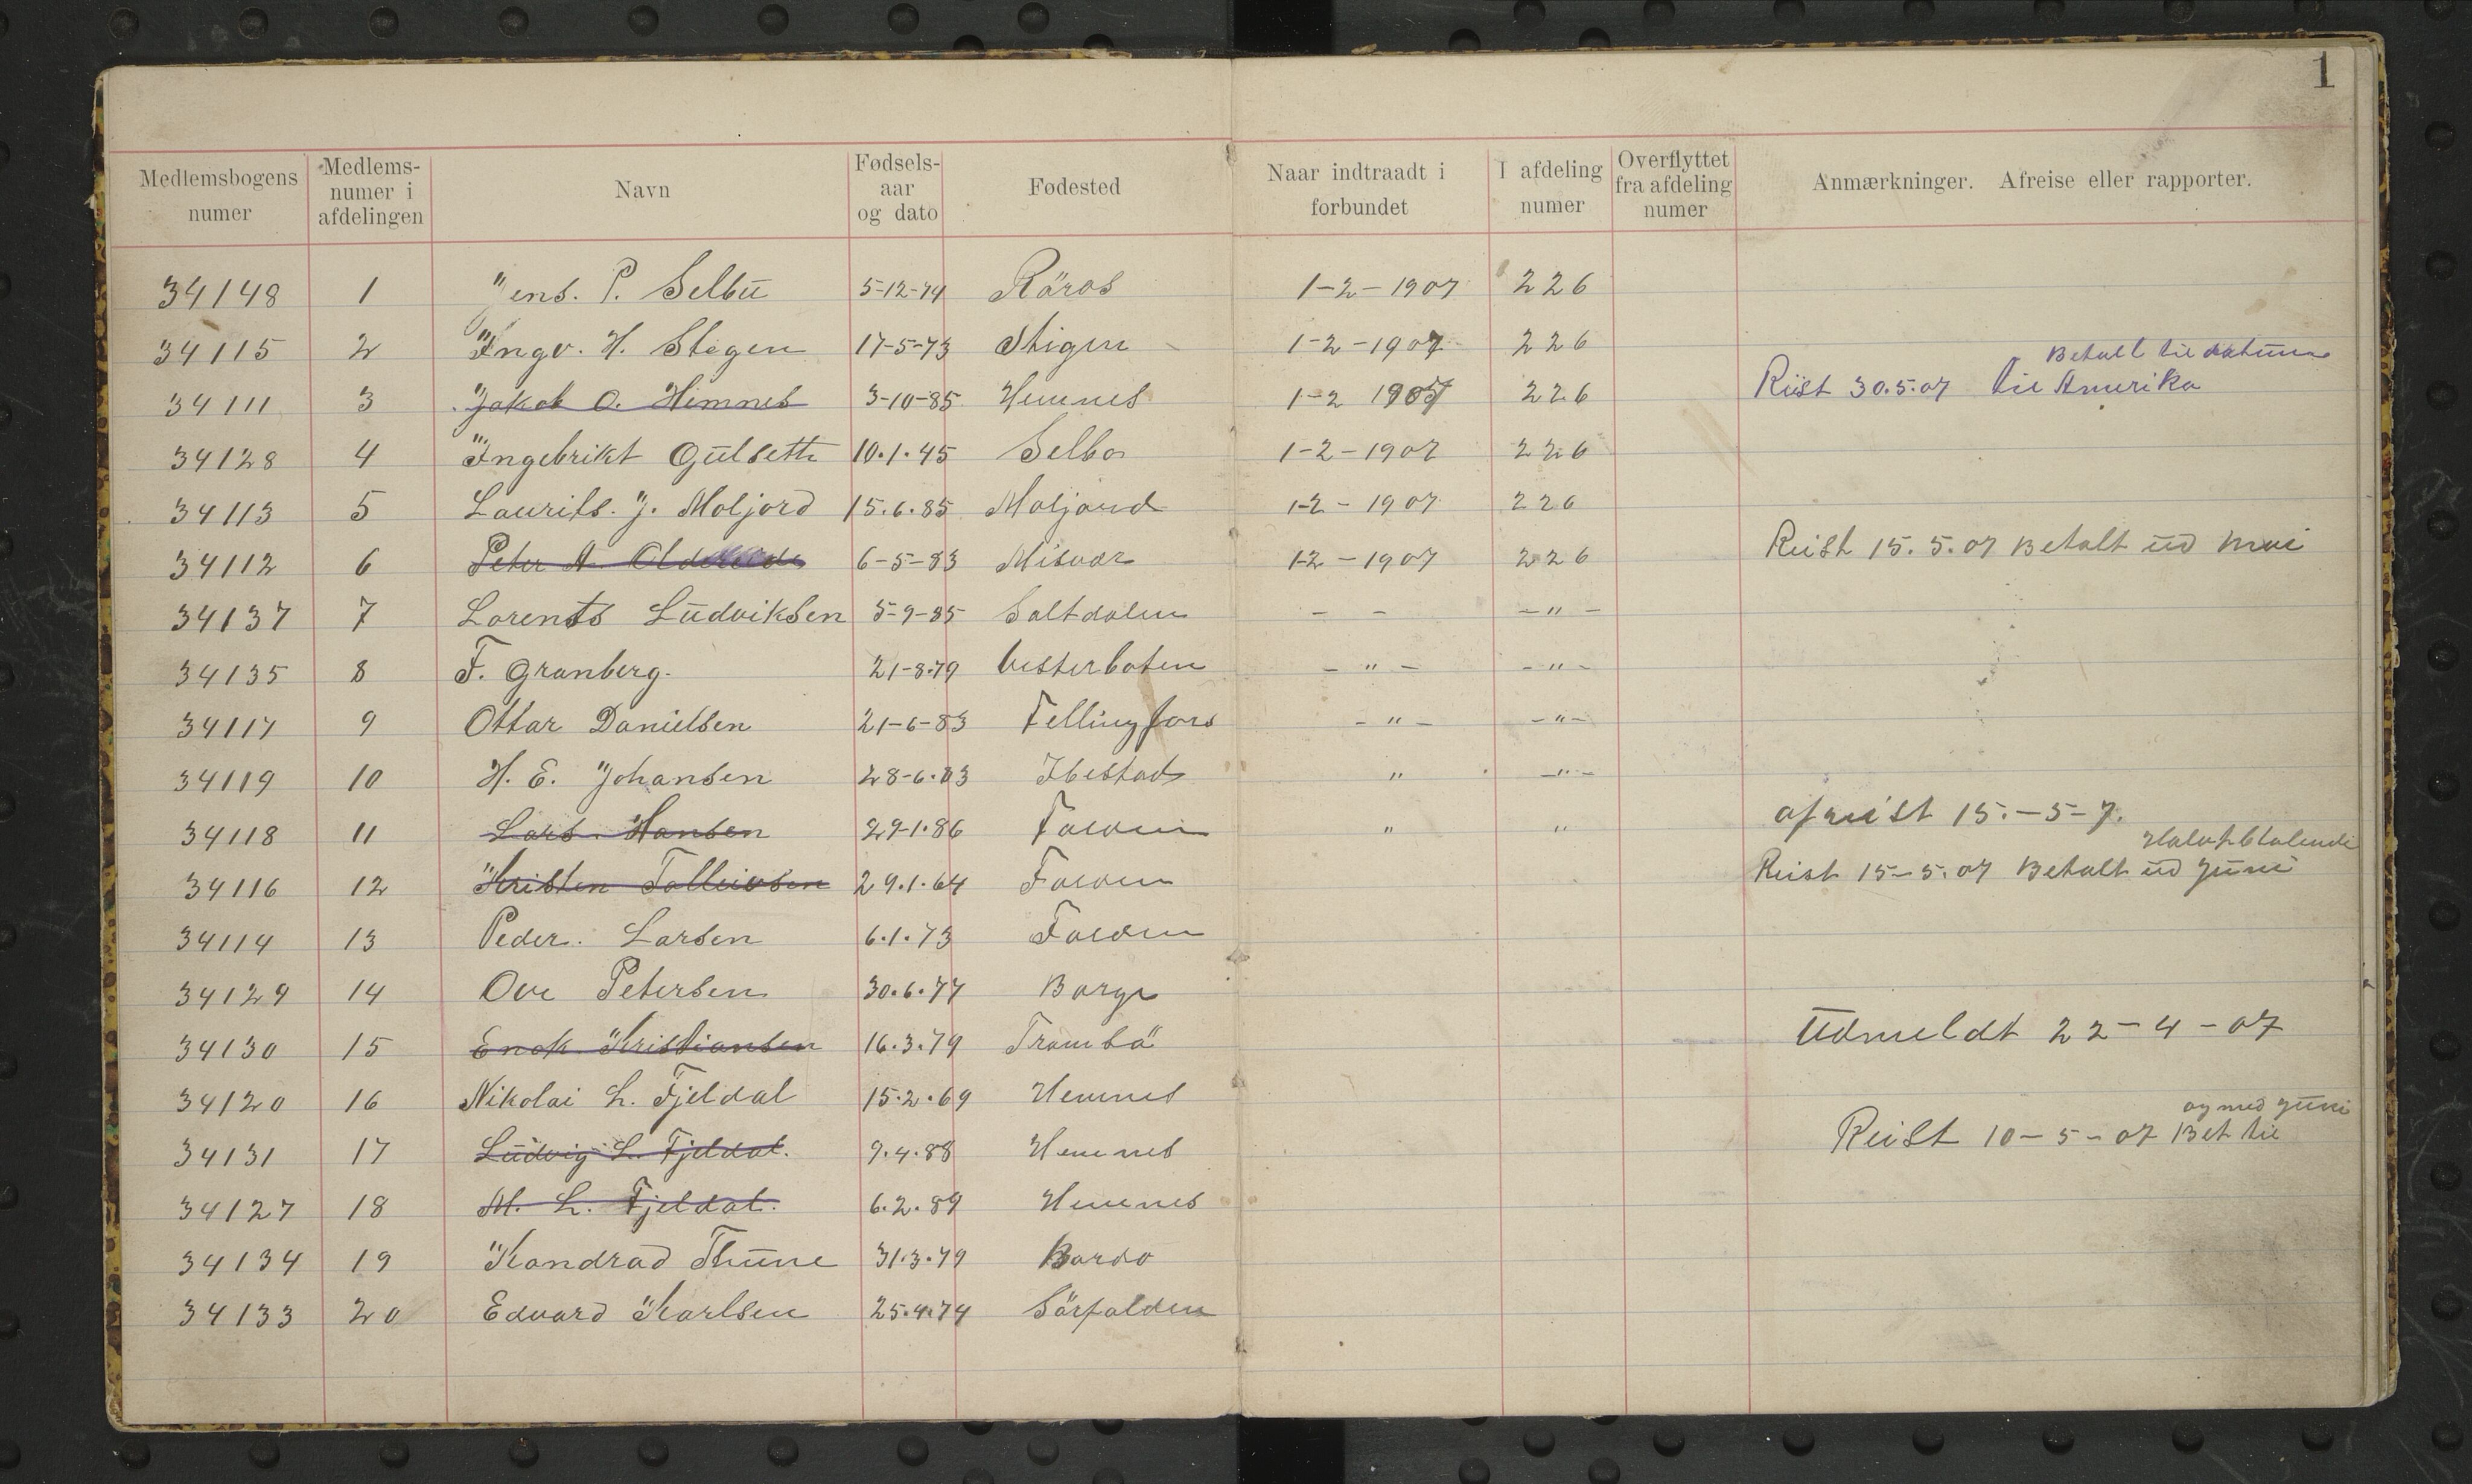 1
Medlemsbogens numer Medlems-numer i afdelingen Navn Fødsels-aar og dato Fødested Naar indtraadt i forbundet I afdeling numer Overflyttet fra afdeling numer Anmærkninger. Afreise eller rapporter.
34148 1 Jens. P. Selbu 5-12-74 Röros 1-2-1907 226
34115 2 Ingv. H. Stegen 17-5-73 Stigen 1-2-1907 226
Betalt til datum
34111 3 Jakob O. Hemnes 3-10-85 Hemnes 1-2 1907 226 Reist 30.5.07 til Amerika
34128 4 Ingebrikt Gulseth 10.1.45 Selbo 1-2-1907 226
34113 5 Laurits. J. Moljord 15.6.85 Moljord 1-2-1907 226
34112 6 Peter A. 6-5-83 Misvær 1-2-1907 226 Reist 15.5.07 Betalt ud mai
34137 7 Lorents Ludviksen 5-9-85 Saltdalen - - -"-
34135 8 F. Granberg. 21-8-79 Vesterboten -"- -"-
34117 9 Ottar Danielsen 21-6-83 Fellingfors -"- -"-
34119 10 H. E. Johansen 28-6.83 Ibestad " -"-
34118 11 Lars. Hansen 29-1.86 Folden " " afreist 15.-5-7.
34116 12 Kristen Tolleivsen 29.1.64 Folden Reist 15-5.07 Betalt ud Juni
34114 13 Peder. Larsen 6.1.73 Folden
34129 14 Ove Petersen 30.6.77 Borge
34130 15 Enok. Kristiansen 16.3.79 Tromsö Udmeldt 22-4-07
34120 16 Nikolai L. Fjeldal 15.2.69 Hemnes
og med Juni
34131 17 Ludvig L. Fjeldal. 9.4.88 Hemnes Reist 10-5-07 Bet til
34127 18 M. L. Fjeldal. 6.2.89 Hemnes
34134 19 Kondrad Thune 31.3.79 Bardo
34133 20 Edvard Karlsen 25.4.74 Sörfolden